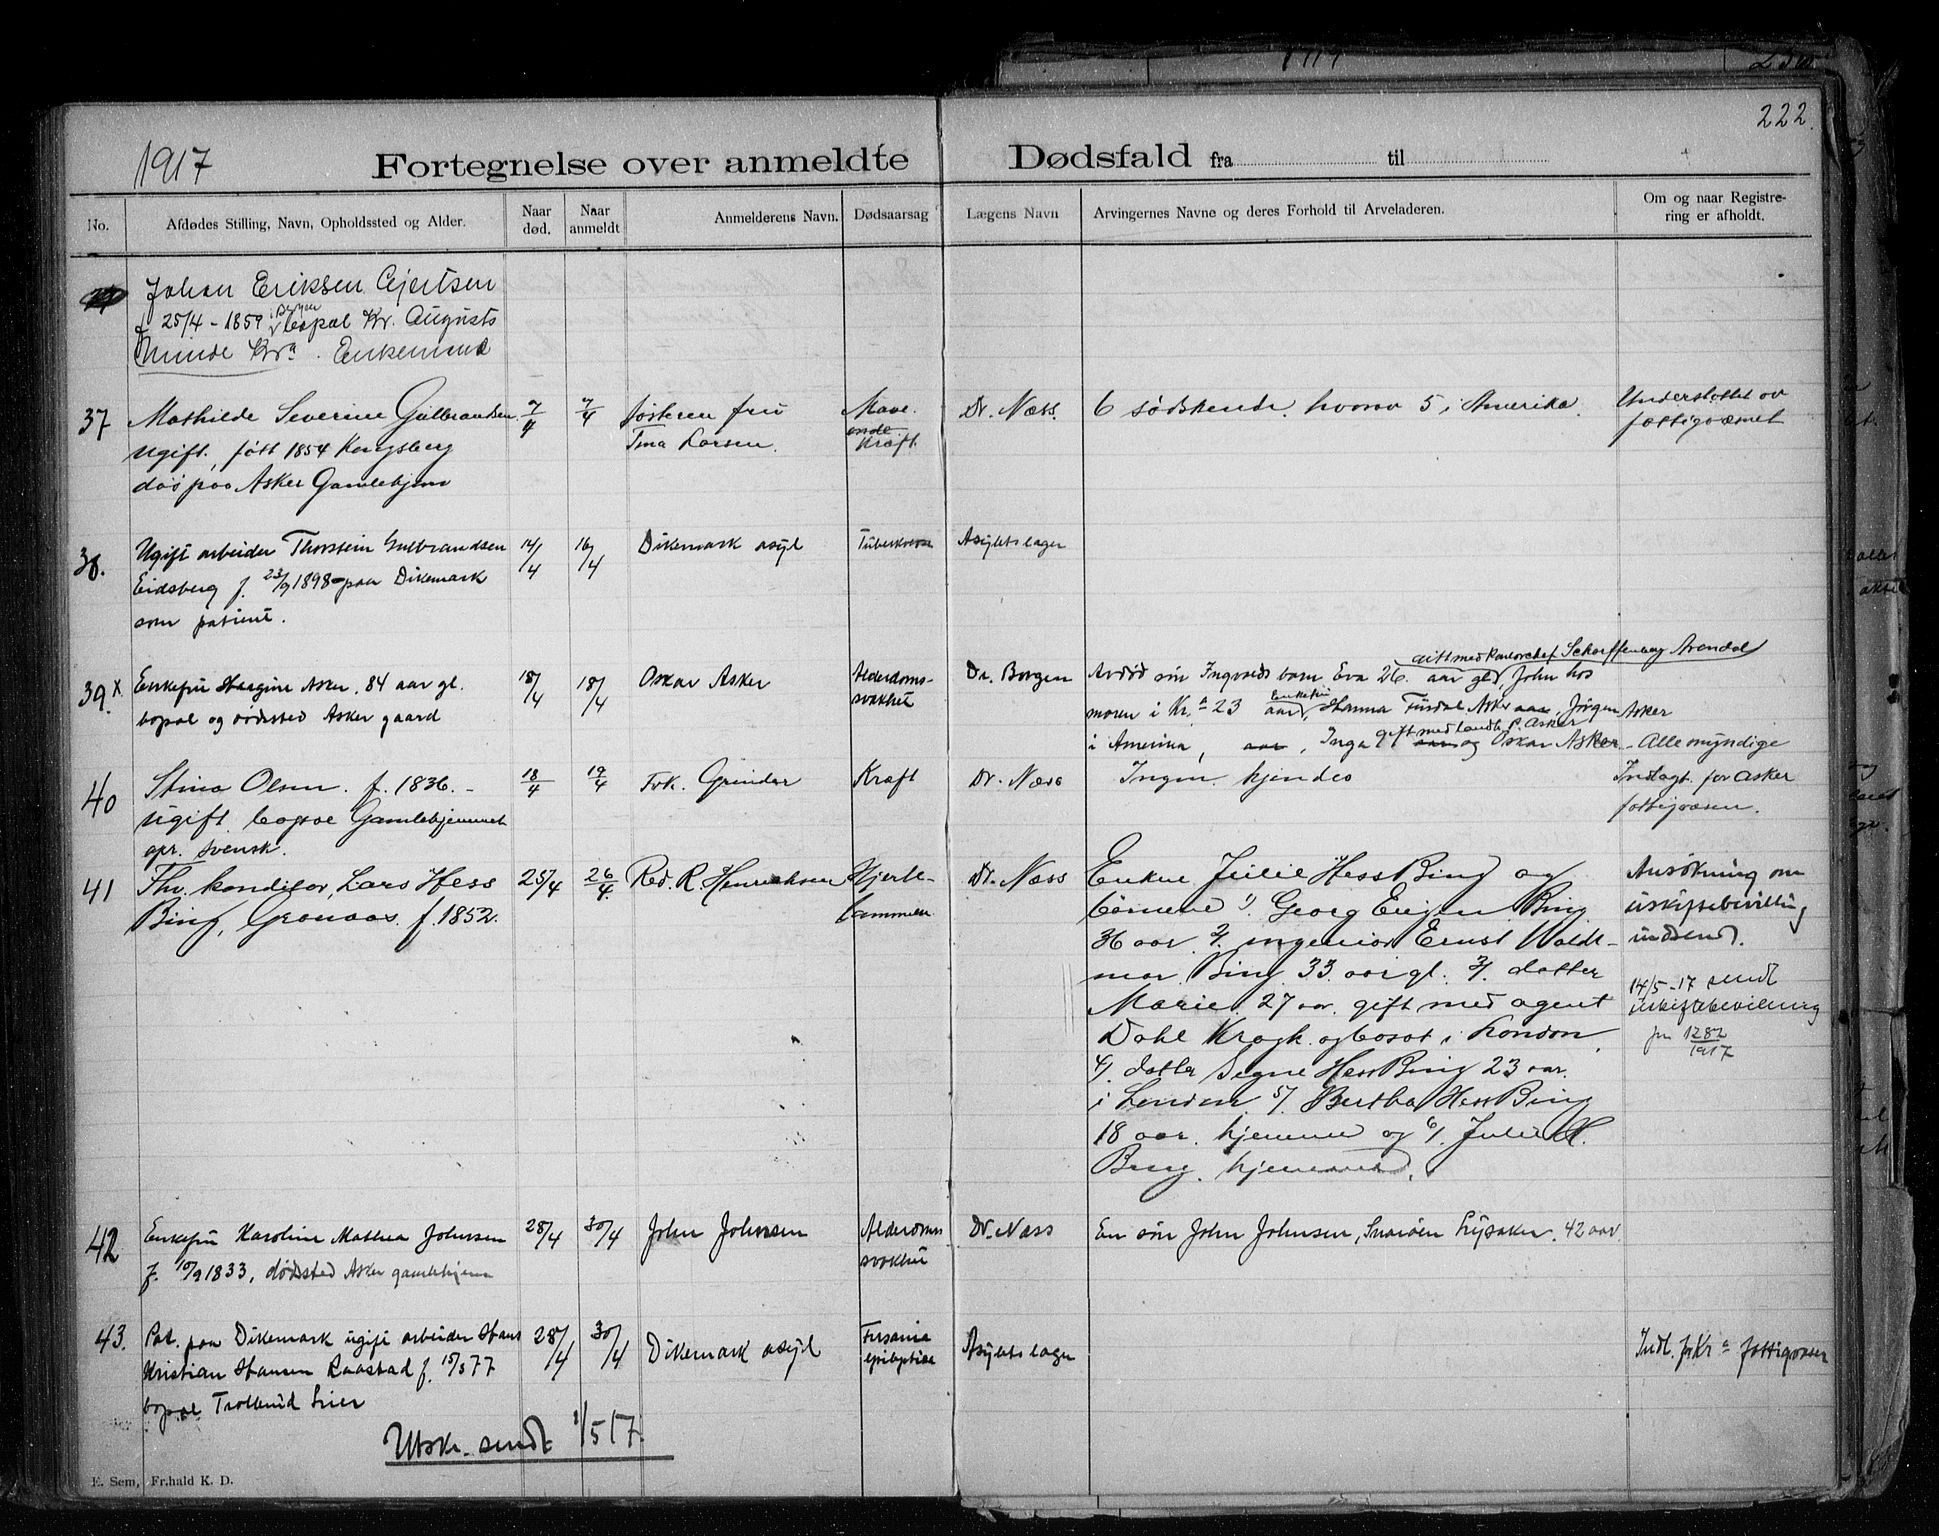 222.
1917
Fortegnelse over anmeldte Dødsfald fra til
No.
Afdødes Stilling, Navn, Opholdssted og Alder.
Naar død.
Naar anmeldt
Anmelderens Navn.
Dødsaarsag
Lægens Navn
Arvingernes Navne og deres Forhold til Arveladeren.
Om og naar Registrering er afholdt.
Johan Eriksen Gjertsen
f 25/4 - 1859 bopæl Kr. Augusts
Minde Kr.a. Enkemand
37
Mathilde Severine Gulbrandsen
ugift, født 1854 Kongsberg
død paa Asker Gamlehjem
7/4
7/4
søsteren fru
Tina Larsen.
Mave
Kræft
Dr. Næss.
6 sødskende hvorav 5 i Amerika.
Understøttet av
fattigvæsenet
38.
Ugift arbeider Thorstein Gulbrandsen
Eidsberg f. 23/9 1898 paa Dikemark
som patient.
14/4
16/4
Dikemark asyl
Tuberkulose
Asylets læge
39. x
Enkefru Hargine Asker, 84 aar gl.
bopæl og dødssted Asker gaard
18/4
18/4
Oskar Asker
Alderdoms-
svakhet
Dr. Borgen
gift med kontorchef Scharffenberg Arendal
Avdød søn Ingvalds barn Eva 26 aar gl, John hos
moren i Kr.a 23 aar, enkefru Hanna Asker aar, Jörgen Asker
i Amerika, aar, Inga gift med landh. P. Asker aar og Oskar Asker - Alle myndige
40
Stina Olsen. f. 1836. -
ugift, bopæl Gamlehjemmet
opr. svensk.
18/4
19/4
Frk. Grinder
Kræft
Dr. Næss
Ingen kjendes
Indlagt for Asker
fattigvæsen.
41
Fhv. konditor, Lars Hess
Bing, Granaas. f. 1852.
25/4
26/4.
Red. R. Henrichsen
Hjerte-
lammen
Dr. Næss
Enken Julie Hess Bing og
börnene 1/. Georg Eugen Bing
36 aar. 2/. ingeniør Ernst Walde-
mar Bing 33 aar gl. 3/. datter
Marie 27 aar. gift med agent
Dahl Krogh og bosat i London,
4/. datter Signe Hess Bing 23 aar.
i London. 5/. Bertha Hess Bing
18 aar. hjemme og 6/. Julie H.
Bing. hjemme.
Ansøkning om
uskiftebevilling
indsend.
14/5 - 17 sendt
uskiftebevilling
jnr 1282/1917
42
Enkefru Karoline Mathea Johnsen
f. 10/9 1833, dødssted Asker gamlehjem
28/4
30/4
John Johnsen
Alderdoms
svakhet
Dr. Næss
En søn John Johnsen, Snarøen Lysaker. 42 aar.
43.
Pat. paa Dikemark ugift arbeider Hans
Kristian Hansen Raastad f. 15/3 77
bopæl Lier
28/4
30/4
Dikemark asyl
epileptica
Asylets læge
Indl. f. Kr.a fattigvæsen
Utskr. sendt 1/5 17.
E. Sem, Fr.hald K. D.